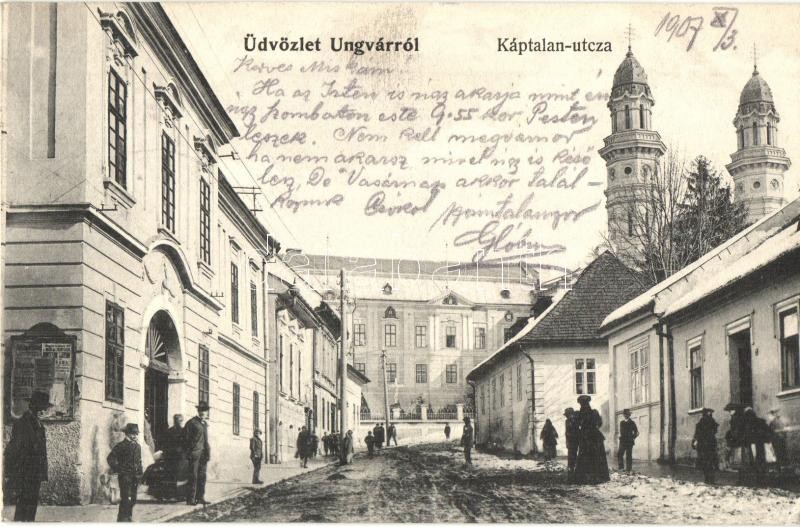 Üdvözlet Ungvárról
Káptalan-utcza
1907 XI/3.
Kedves Miskám!
Ha az Isten is úgy akarja mint én
úgy szombaton este 9.55 kor Pesten
leszek. Nem kell megvárnod
ha nem akarsz mivel úgy is késő
lesz, De Vasárnap akkor talál-
kozunk Csókol számtalanszor